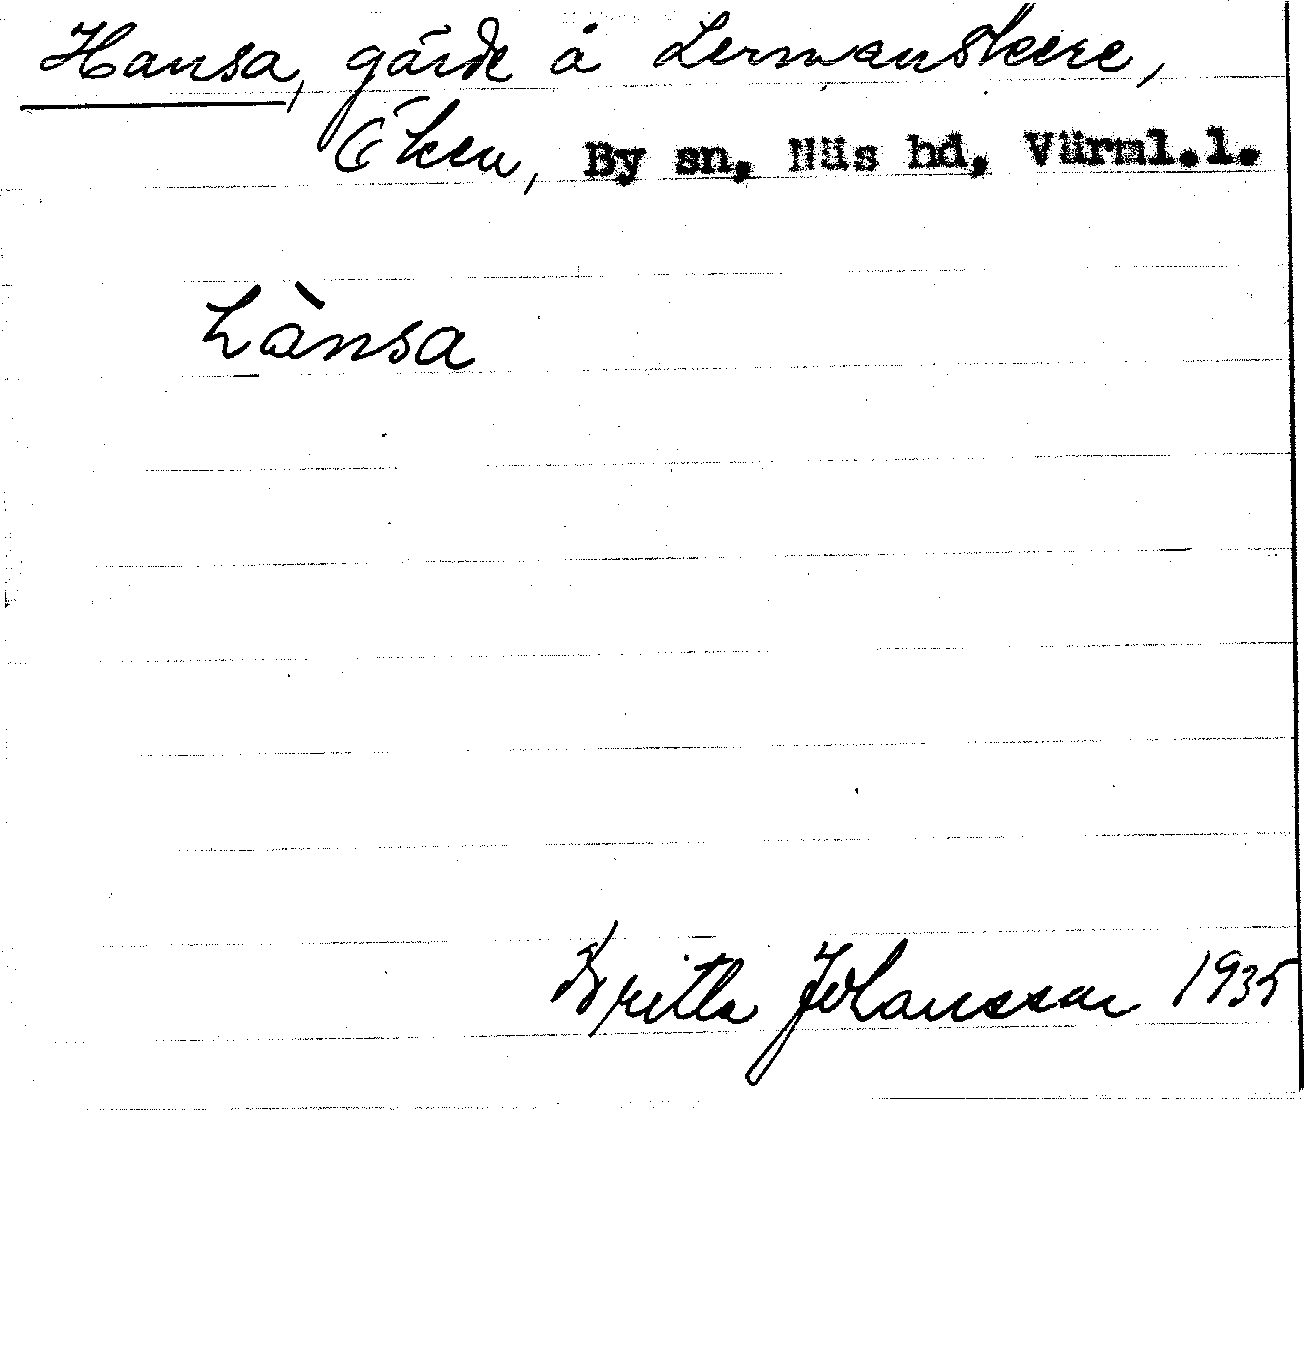 Hansa, gärde å Lermanskere,
Öken, By sn, Näs hd, Värml.l.
hànsa
Britta Johansson 1935